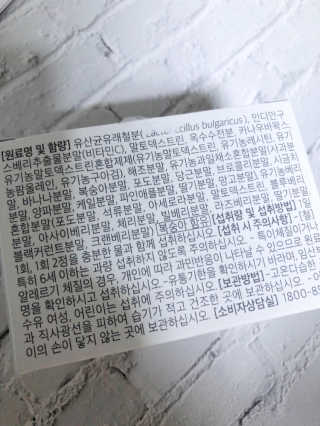 [원료명 및 함량] 유산균유래철분( bulgaricus), 인디안구
스베리추출물분말(비타민C), 말토덱스트린, 옥수수전분, 카나우바왁스,
유기농말토덱스트린혼합제제(유기농말토덱스트린, 유기농레시틴, 유기
농팜올레인, 유기농구아검), 해조분말, 유기농과일채소혼합분말(사과분
말, 바나나분말, 복숭아분말, 포도분말, 당근분말, 브로콜리분말, 시금치
분말, 양파분말, 케일분말, 파인애플분말, 딸기분말,
혼합분말(포도분말, 석류분말, 아세로라분말, 말토덱스트린, 블루베리
분말, 아사이베리분말, 체리분말, 빌베리분말, 라즈베리분말, 딸기분말,
블랙커런트분말, 크랜베리분말) 복숭아 함유 [섭취량 및 섭취방법] 1일
1회, 1회 2정을 충분한 물과 함께 섭취하십시오. [섭취 시 주의사항] -
특히 6세 이하는 과량 섭취하지 않도록 주의하십시오. -특이체질이거나
알레르기 체질의 경우, 개인에 따라 과민반응이 나타날 수 있으므로 원료
명을 확인하시고 섭취하십시오. -유통기한을 확인하시기 바라며, 임산
수유 여성, 어린이는 섭취에 주의하십시오. [보관방법] -고온다습한
과 직사광선을 피하여 습기가 적고 건조한 곳에 보관하십시오. -어
이의 손이 닿지 않는 곳에 보관하십시오. [소비자상담실] 1800-8